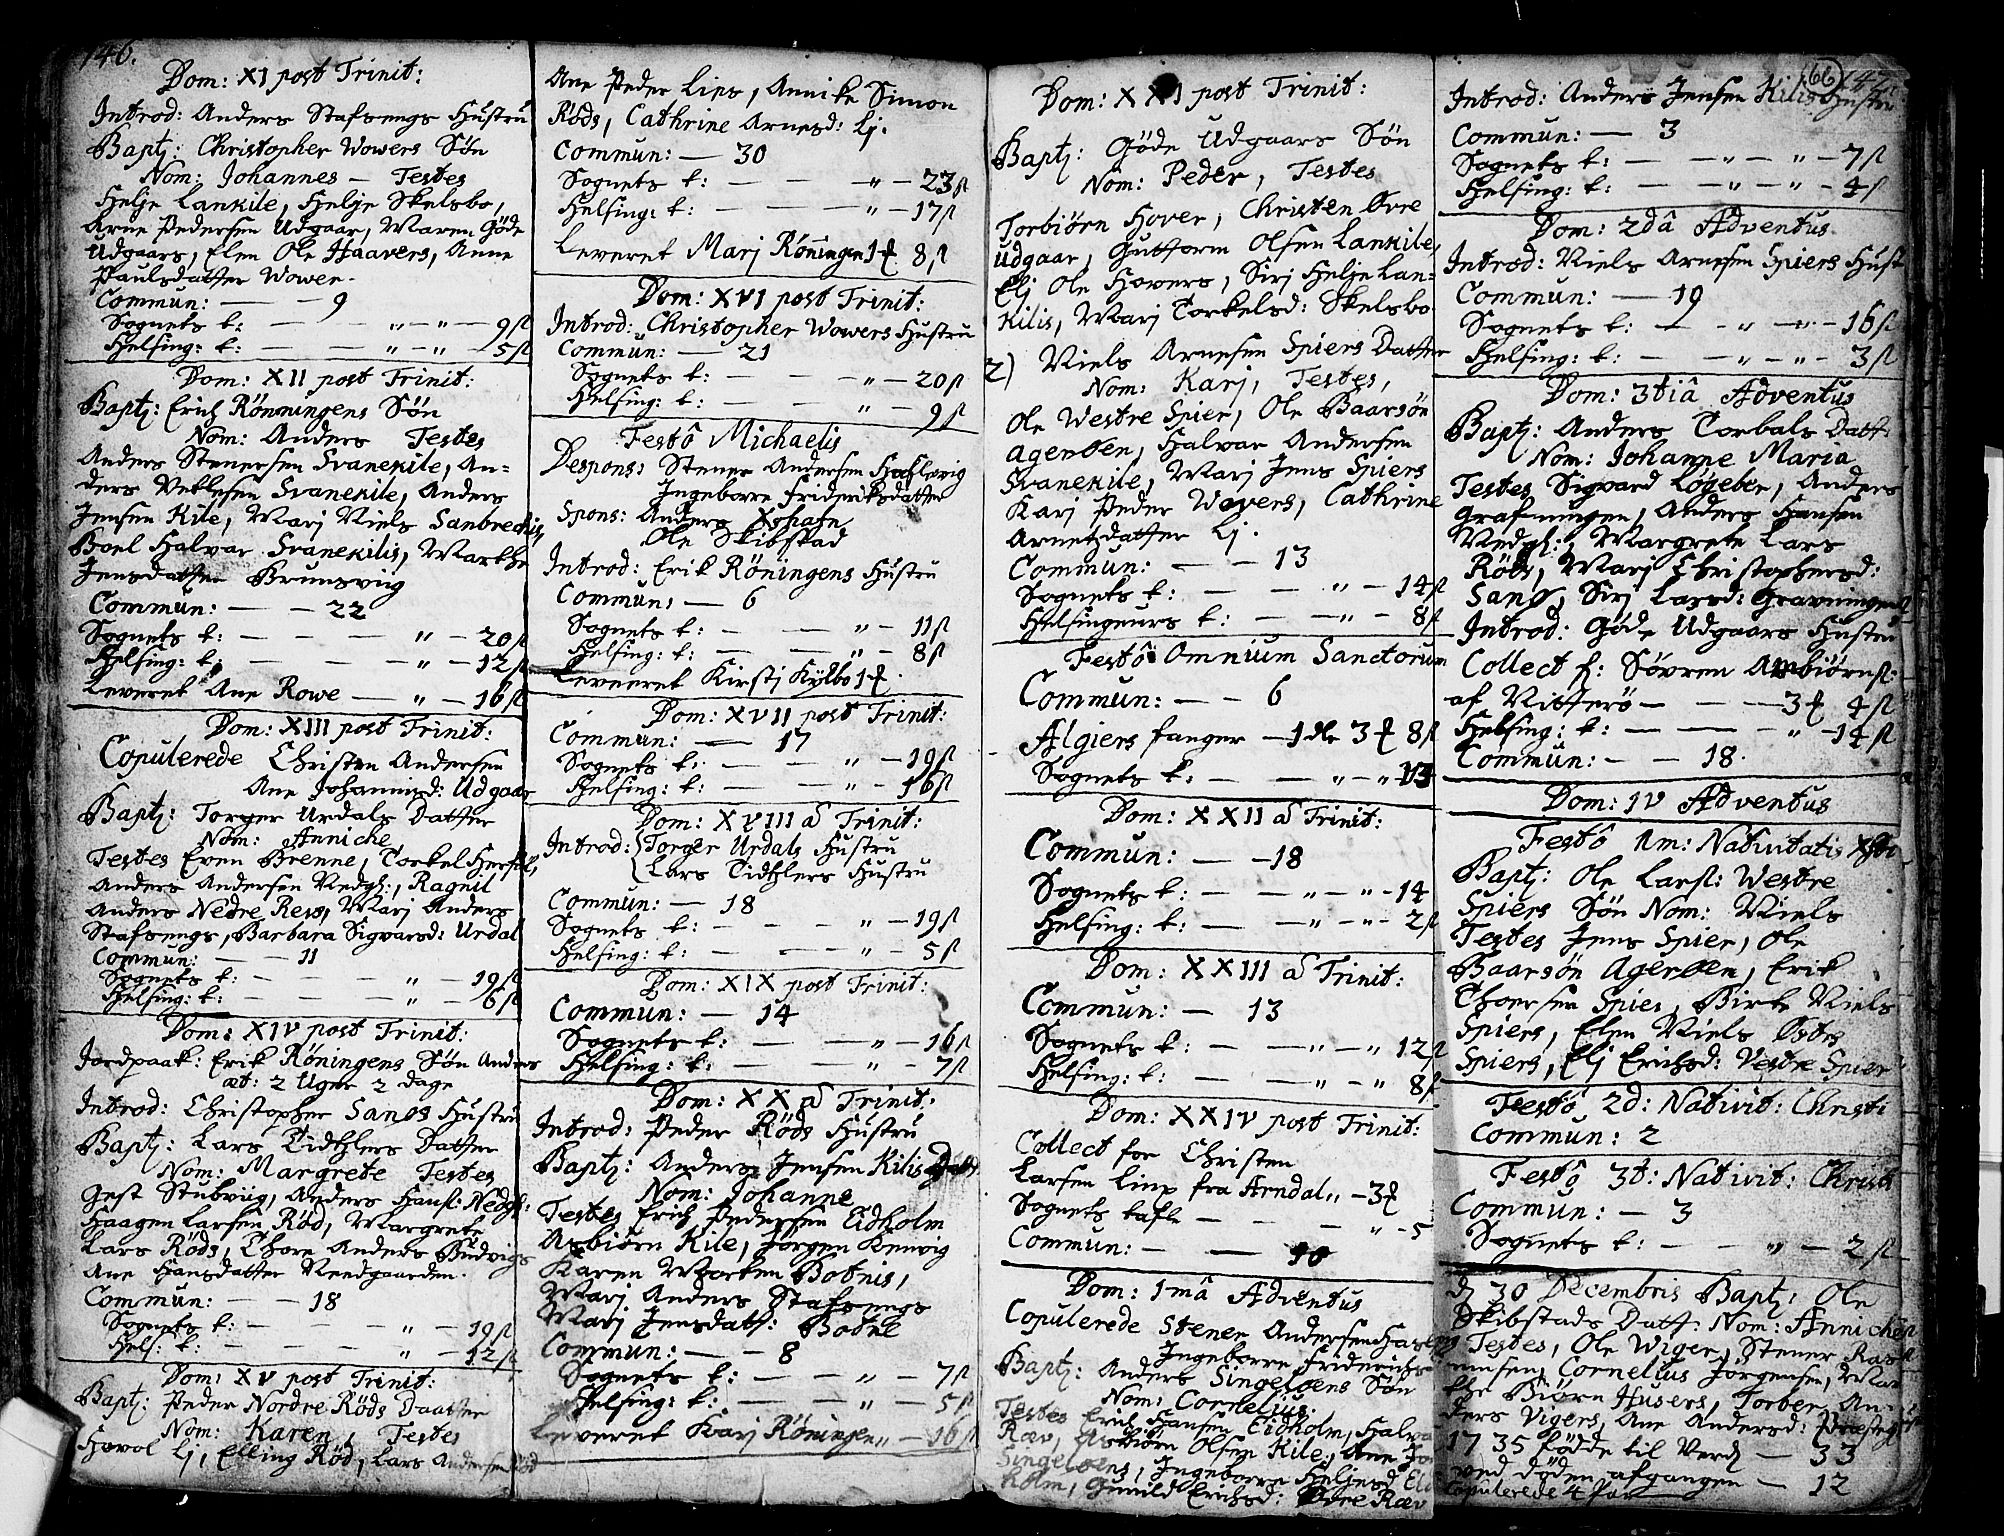 146.
Dom: XI post Trinit:
Introd: Anders Stafsengs Hustru
Bapt: Christopher Wowers Søn
Nom: Johannes — Testes
Helje Lankile, Helje Skelsbo,
Arne Pedersen Udgaar, Maren Gøde
Udgaars, Elen Ole Haavers, Anne
Paulsdatter Wower.
Commun: — — 9
Sognets t: — — " — " — 9 ß
Helsing: t: — — " — " — 5 ß
Dom: XII post Trinit:
Bapt: Erich Rönningens Søn
Nom: Anders Testes
Anders Stenersen Svanekile, An=
ders Vetlesen Svanekile, Anders
Jensen Kile, Marj Niels Sanbrechis,
Boel Halvar Svanekilis, Marthe
Jensdatter Brunsviig
Commun: — — 22
Sognets t: — — — " — 20 ß
Helsing: t: — — — " — 12 ß
Leveret Ane Rowe — " — 16 ß
Dom: XIII post Trinit:
Copulerede Christen Andersen
Ane Johannisd: Udgaar
Bapt: Torger Urdals Datter
Nom: Anniche
Testes Even Brenne, Torkel Hersel,
Anders Andersen Nedgl:, Ragnil
Anders Nedre Reis, Marj Anders
Stafsengs, Barbara Sigvarsd: Urdal
Commun: — — 11
Sognets t: — — — " — 19 ß
Helsing: t: — — — " — 6 ß
Dom: XIV post Trinit:
Jordpaak: Erik Röningens Søn Anders
æt: 2 Uger 2 dage
Introd: Christopher Sanøs Hustru
Bapt: Lars Tidtzlers Datter
Nom: Margrete Testes
Gest Stubviig, Anders Hans: Nedgl:
Haagen Larsen Röd, Margrete
Lars Röds, Thore Anders Budvigs
Ane Hansdatter Needgaarden.
Commun: — — 18
Sognets t: — — — " — 19 ß
Hels: t: — — — " — 12 ß
Dom: XV post Trinit:
Bapt: Peder Nordre Röds Daatter
Nom: Karen, Testes
Havol Lj, Elling Röd, Lars Andersen Röd
Ane Peder Lies, Annike Simon
Röds, Cathrine Arnesd: Lj.
Commun: — 30
Sognets t: — — — " — 23 ß
Helsing: t: — — — " — 17 ß
Leveret Marj Rönningen 1 8 ß
Dom: XVI post Trinit:
Introd: Christopher Wowers Hustru
Commun: — 21
Sognets t: — — — " — 20 ß
Helsing: t: — — — " — 9 ß
Festô Michaelis
Despons: Stener Andersen Haslevig
Ingeborre Frideriksdatter
Spons: Anders
Ole Skibstad
Introd: Erik Röningens Hustru
Commun: — 6
Sognets t: — — " — 11 ß
Helsing: t: — — " — 8 ß
Leveret Kirstj Kylbo 1
Dom: XVII post Trinit:
Commun: — 17
Sognets t: — — " — 19 ß
Helsing: t: — — " — 16 ß
Dom: XVIII a Trinit:
Introd: Torger Urdals Hustru
Lars Tidtzlers Hustru
Commun: — 18
Sognets t: — — — " — 19 ß
Helsing: t: — — — " 5 ß
Dom: XIX post Trinit:
Commun: — 14
Sognets t: — — " — 16 ß
Helsing: t: — — " — 7 ß
Dom: XX a Trinit:
Introd: Peder Röds Hustru
Bapt: Anders Jensen Kilis Datt
Nom: Johanne
Testes Erich Pedersen Eidholm
Asbiörn Kile, Jörgen Kenvig
Karen Morten Botnis,
Marj Anders Stafsengs
Marj Jensdatt: Botne
Commun: — — 8
Sognets t: — — " — 7 ß
Helsing: t: — — " — 5 ß
Leveret Karj Röningen " — 16 ß
Dom: XXI post Trinit:
Bapt: Gøde Udgaars Søn
Nom: Peder, Testes
Torbiörn Hover, Christen Øvre
Udgaar, Guttorm Olsen Lankile,
Elj Ole Howers, Sirj Helje Lan=
Kilis, Marj Torkelsd: Skelsbo
2) Niels Arnesen Spiers Datter
Nom: Karj, Testes,
Ole Westre Spier, Ole Baarsøn
Agerøen, Halvar Andersen
Svanekile, Marj Jens Spiers
Karj Peder Wovers, Cathrine
Arnetzdatter Lj.
Commun: — — 13
Sognets t: — — " — 14 ß
Helsingeurs t: — — " — 8 ß
Festô Omnium Sanctorum
Commun: — — 6
Algiers fanger — 1 dlr 3 8 ß
Sognets t: — — " — " 13
Dom: XXII a Trinit:
Commun: — — 18
Sognets t: — — " — " — 14
Helsing: t: — — " — " — 2 ß
Dom: XXIII a Trinit:
Commun: — 13
Sognets t: — — " — " 12 ß
Helsing: t: — — " — " 8 ß
Dom: XXIV post Trinit:
Collect for Christen
Larsen Linp fra Arndal " — 3
Sognets tafle — — — " — 5
Commun: — — 10
Dom: 1mâ Adventus
Copulerede Stener Andersen Haslevig
Ingeborre Friderichs
Bapt: Anders Singeløens Søn
Nom: Cornelius.
Testes Erich Hansen Eidholm, Halvar
Ræv, Asbiörn Olsen Kile, Ane
Singeløens, Ingeborre Heljesd Eid
holm, Gunild Erichsd: Ødre Ræv
66
147.
Introd: Anders Jensen Kilis Hustru
Commun: — 3
Sognets t: — — " — " — 7 ß
Helsing: t: — — " — " — 4 ß
Dom: 2dâ Adventus
Introd: Niels Arnesen Spiers Hust
Commun: — 19
Sognets t: — — " — " — 16 ß
Helsing: t: — — " — " — 3 ß
Dom: 3tiâ Adventus
Bapt: Anders Torbals Datt
Nom: Johanne Maria
Testes Sigvard Løgeber, Anders
Grafningen, Anders Hansen
Nedgl:, Margrete Lars
Röds, Marj Christophersd:
Sanø, Sirj Larsd: Gravningen
Introd: Gøde Udgaars Hustru
Collect f: Sövren Ambiörns:
af Nitterö — — — 3 4 ß
Helsing: t: — — — " — 14 ß
Commun: — — 18.
Dom: IV Adventus
Festô 1m: Nativitatis Xsti
Bapt: Ole Lars: Westre
Spiers Søn Nom: Niels
Testes Jens Spier, Ole
Baarsøn Agerøen, Erik
Thoersen Spier, Birte Niels
Spiers, Elen Niels Østes
Spiers, Elj Erichsd: Vestre Spier
Festô 2d: Nativit: Christi
Commun: 2
Festô 3t: Nativit: Christi
Commun: — 3
Sognets t: — — " — 2 ß
dj 30 Decembris Bapt: Ole
Skibstads Datt: Nom: Annichen
Testes, Ole Wiger, Stener Ras
musen, Cornelius Jörgensen, Mar
the Biörn Husers, Torber An
ders Vigers, Ane Andersd: Præsteg
1735 fødde til Verd — 33
ved døden afgangen — 12
Copulerede 4 Par